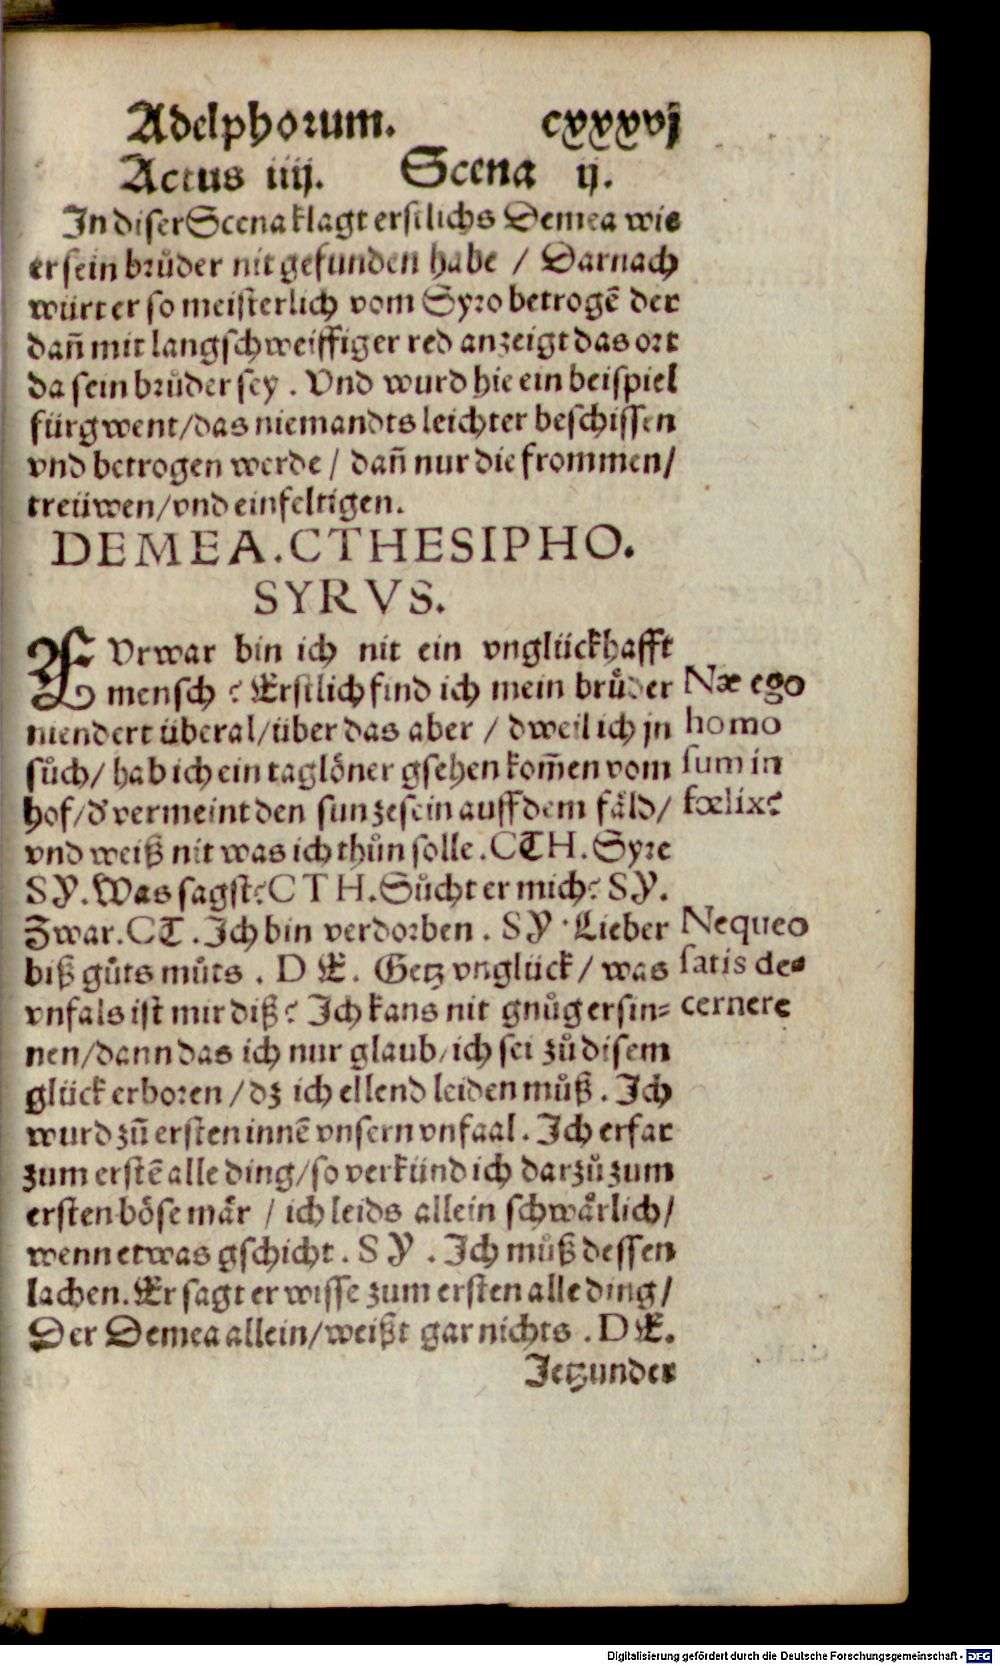 Adelphorum. cxxxvj
Actus iiij. Scena ij.
In diser Scena klagt erstlichs Demea wie
er sein brůder nit gefunden habe / Darnach
würt er so meisterlich vom Syro betrogē der
dañ mit langschweiffiger red anzeigt das ort
da sein brůder sey . Vnd wurd hie ein beispiel
fürgwent/das niemandts leichter beschissen
vnd betrogen werde / dañ nur die frommen/
treüwen/vnd einfeltigen.
DEMEA.CTHESIPHO.
SYRVS.
FVrwar bin ich nit ein vnglückhafft
mensch ? Erstlich find ich mein brůder
niendert überal/über das aber / dweil ich jn
sůch/ hab ich ein taglöner gsehen kom̄en vom
hof/ď vermeint den sun ze sein auff dem fäld/
vnd weiß nit was ich thůn solle .CTH. Syre
SY. Was sagst? CTH. Sůcht er mich? SY.
Zwar. CT. Ich bin verdorben . SY . Lieber
biß gůts můts . DE. Getz vnglück / was
vnfals ist mir diß? Ich kans nit gnůg ersin=
nen/dann das ich nur glaub/ich sei zů disem
glück erboren / dz ich ellend leiden můß . Ich
wurd zū ersten innē vnsern vnfaal . Ich erfar
zum erstē alle ding/so verkünd ich darzů zum
ersten böse mär / ich leids allein schwärlich/
wenn etwas gschicht . SY . Ich můß dessen
lachen. Er sagt er wisse zum ersten alle ding/
Der Demea allein/weißt gar nichts . DE.
Jetzunder
Næ ego
homo
sum in
fœlix?
Nequeo
satis de=
cernere
Digitalisierung gefördert durch die Deutsche Forschungsgemeinschaft - DFG